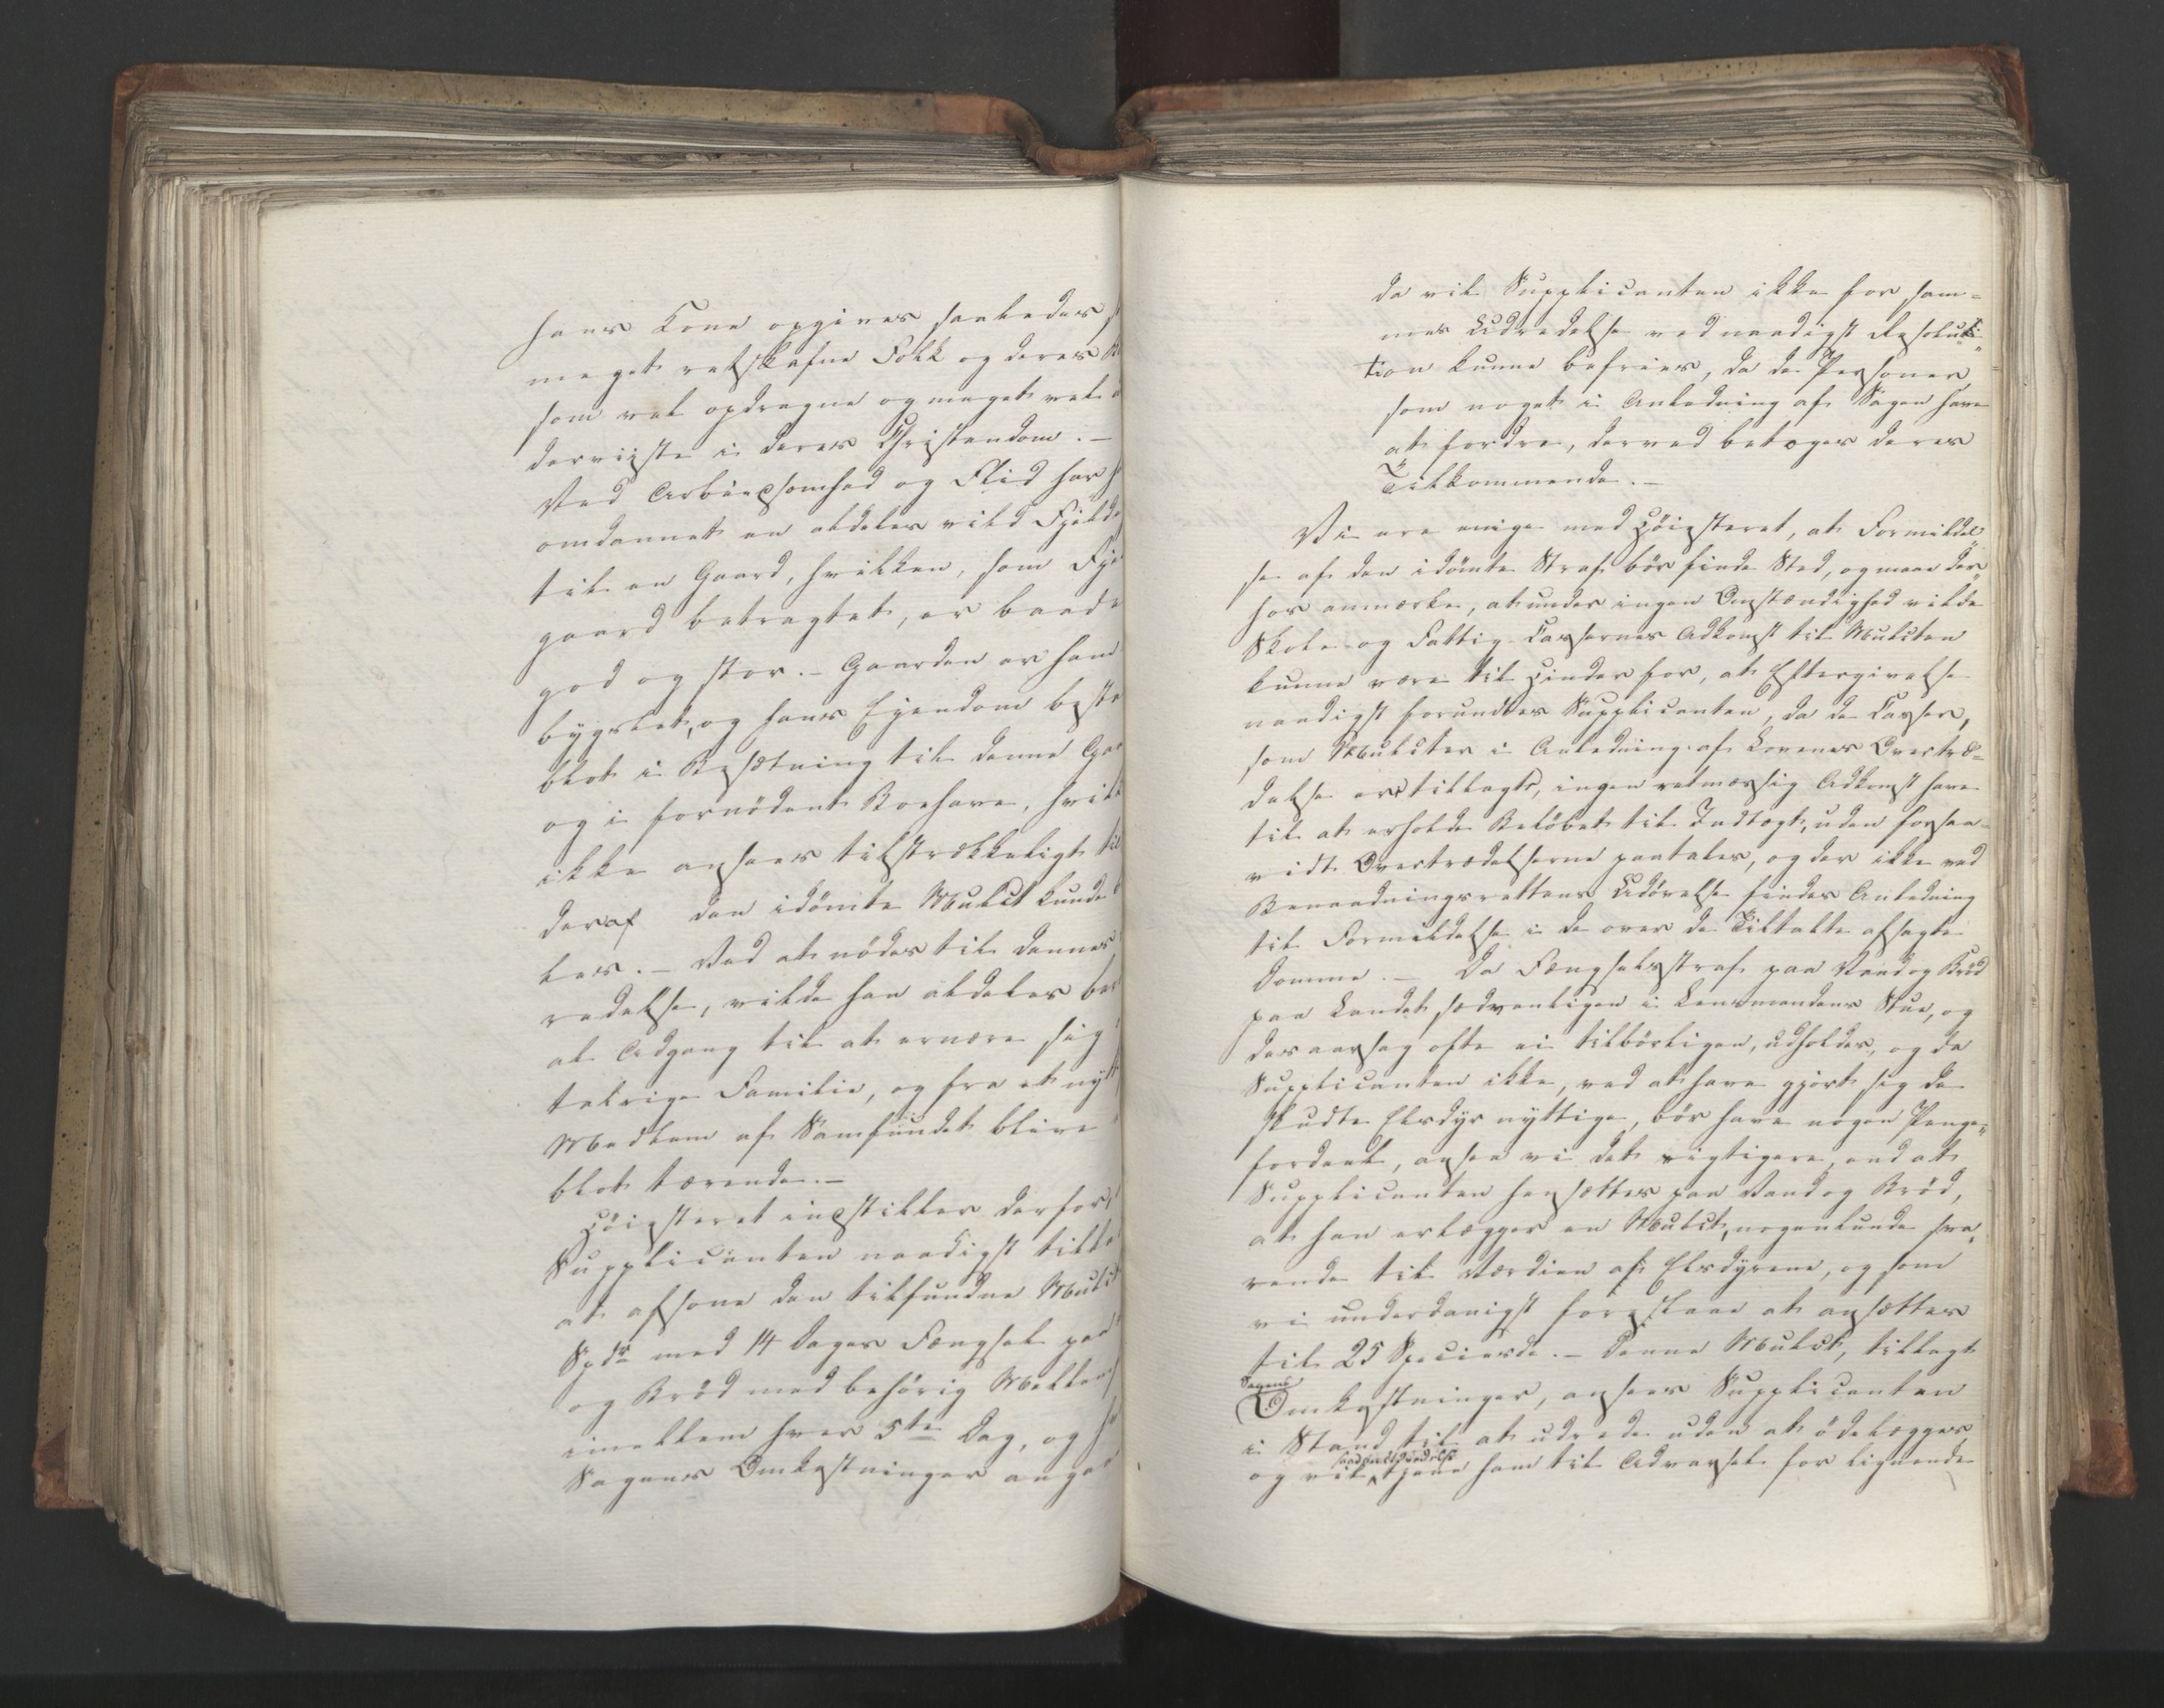 hans Kone opgives saaledes
meget retskafne Folk og deres
som vel opdragne og meget vel
derviiste i deres Christendom. –
Ved Arbeidsomhed og Flid har
omdannet en aldeles vild Fjeld
til en Gaard, hvilken, som Fje
gaard betragtet, er baade
god og stor. – Gaarden er ham
bygslet, og hans Ejendom beste
blot i Besætning til denne Gaa
og i fornødent Boehave, hvilk
ikke ansees tilstrækkeligt til
deraf den idømte Mulct kunde
les. – Ved at nødes til dennes
redelse, vilde han aldeles ber
al Adgang til at ernære sig
talrige Familie, og fra et nytt
Medlem af Samfundet blive
blot tærende. –
Høiesteret indstiller derfor,
Supplicanten naadigst tilla
at afsone den tilfundne Mulct
Spdr med 14 Dages Fængsel paa
og Brød med behörig Mellem
imellem hver 5te Dag, og
Sagens Omkostninger angaa
da vil Supplicanten ikke for sam=
mes Udredelse ved naadigst Resolu
tion kunne befries, da de Personer,
som noget i Anledning af Sagen have
at fordre, derved betoges deres
Tilkommende. –
Vi ere enige med Høiesteret, at Formildel
se af den idömte Straf bör finde Sted, og maae der
hos anmærke, at under ingen Omstændighed vilde
Skole- og Fattig-Cassernes Adkomst til Mulcten
kunne være til Hinder for, at Eftergivelse
naadigst forundtes Supplicanten, da de Casser,
som Mulcter i Anledning af Lovenes Overtræ=
delse er tillagte, ingen retmæssig Adkomst have
til at erholde Beløbet til Indtægt, uden forsaa
vidt Overtrædelserne paatales, og der ikke ved
Benaadningsrettens Udövelse findes Anledning
til Formildelse i de over de Tiltalte afsagte
Domme. – Da Fængselsstraf paa Vand og Bröd
paa Landet sædvanligen i Lensmandens Stue, og
desaarsag ofte ei tilbörligen, udholdes, og da
Supplicanten ikke, ved at have gjort sig de
skudte Elsdyr nyttige, bör have nogen Penge
fordeel, ansee vi det rigtigere, end at
Supplicanten hensættes paa Vand og Bröd,
at han erlægger en Mulct, nogenlunde sva
rende til Værdien af Elsdyrene, og som
vi underdanigst foreslaae at ansættes
til 25 Speciesdr. – Denne Mulct, tillagt
Sagens
Omkostninger, ansees Supplicanten
i Stand til at udrede uden at ödelægges,
og vil tjene ham til Advarsel for lignende